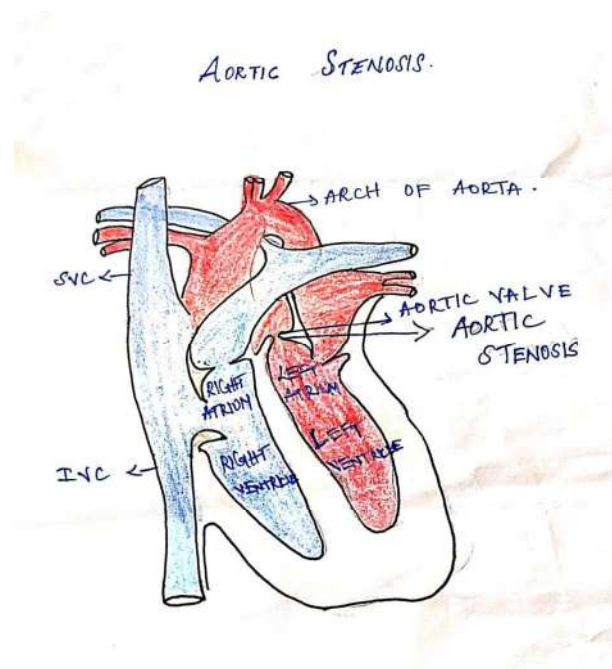 AORTIC STENOSIS.
ARCH OF AORTA.
SVC
AORTIC VALVE
AORTIC
STENOSIS
RIGHT
ATRIUM
LEFT
ATRIUM
LEFT
VENTRICLE
RIGHT
VENTRICLE
IVC